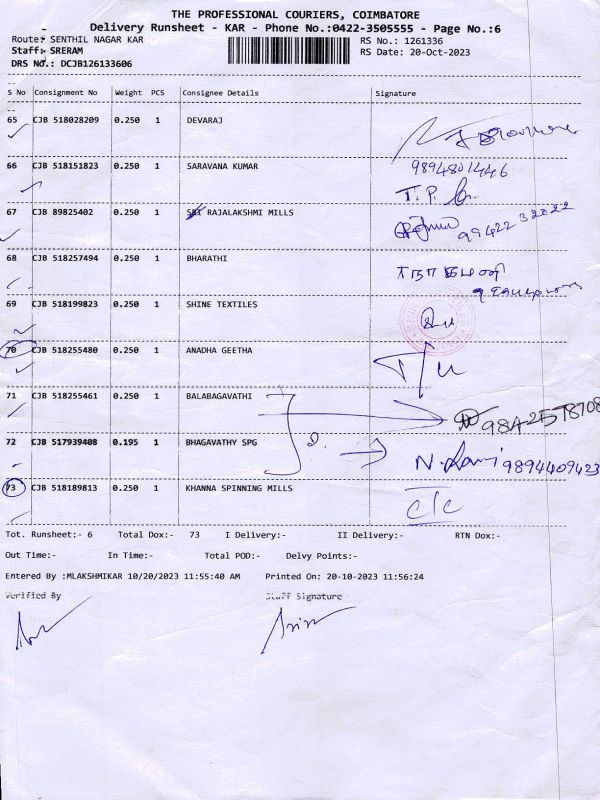 THE PROFESSIONAL COURIERS, COIMBATORE
Delivery Runsheet - KAR - Phone No.:0422-3505555 - Page No.:6
Route: SENTHIL NAGAR KAR RS No.: 1261336
Staff: SRERAM RS Date: 20-Oct-2023
DRS No.: DCJB126133606
S No Consignment No Weight PCS Consignee Details Signature
65 CJB 518028209 0.250 1 DEVARAJ
66 CJB 518151823 0.250 1 SARAVANA KUMAR 9894801446
T.P.
67 CJB 89825402 0.250 1 SRI RAJALAKSHMI MILLS 99422 32022
68 CJB 518257494 0.250 1 BHARATHI
69 CJB 518199823 0.250 1 SHINE TEXTILES
70 CJB 518255480 0.250 1 ANADHA GEETHA
71 CJB 518255461 0.250 1 BALABAGAVATHI
72 CJB 517939408 0.195 1 BHAGAVATHY SPG N. Rani 9894409423
73 CJB 518189813 0.250 1 KHANNA SPINNING MILLS c/c
Tot. Runsheet:- 6 Total Dox:- 73 I Delivery:- II Delivery:- RTN Dox:-
Out Time:- In Time:- Total POD:- Delvy Points:-
Entered By :MLAKSHMIKAR 10/20/2023 11:55:40 AM Printed On: 20-10-2023 11:56:24
Verified By Staff Signature